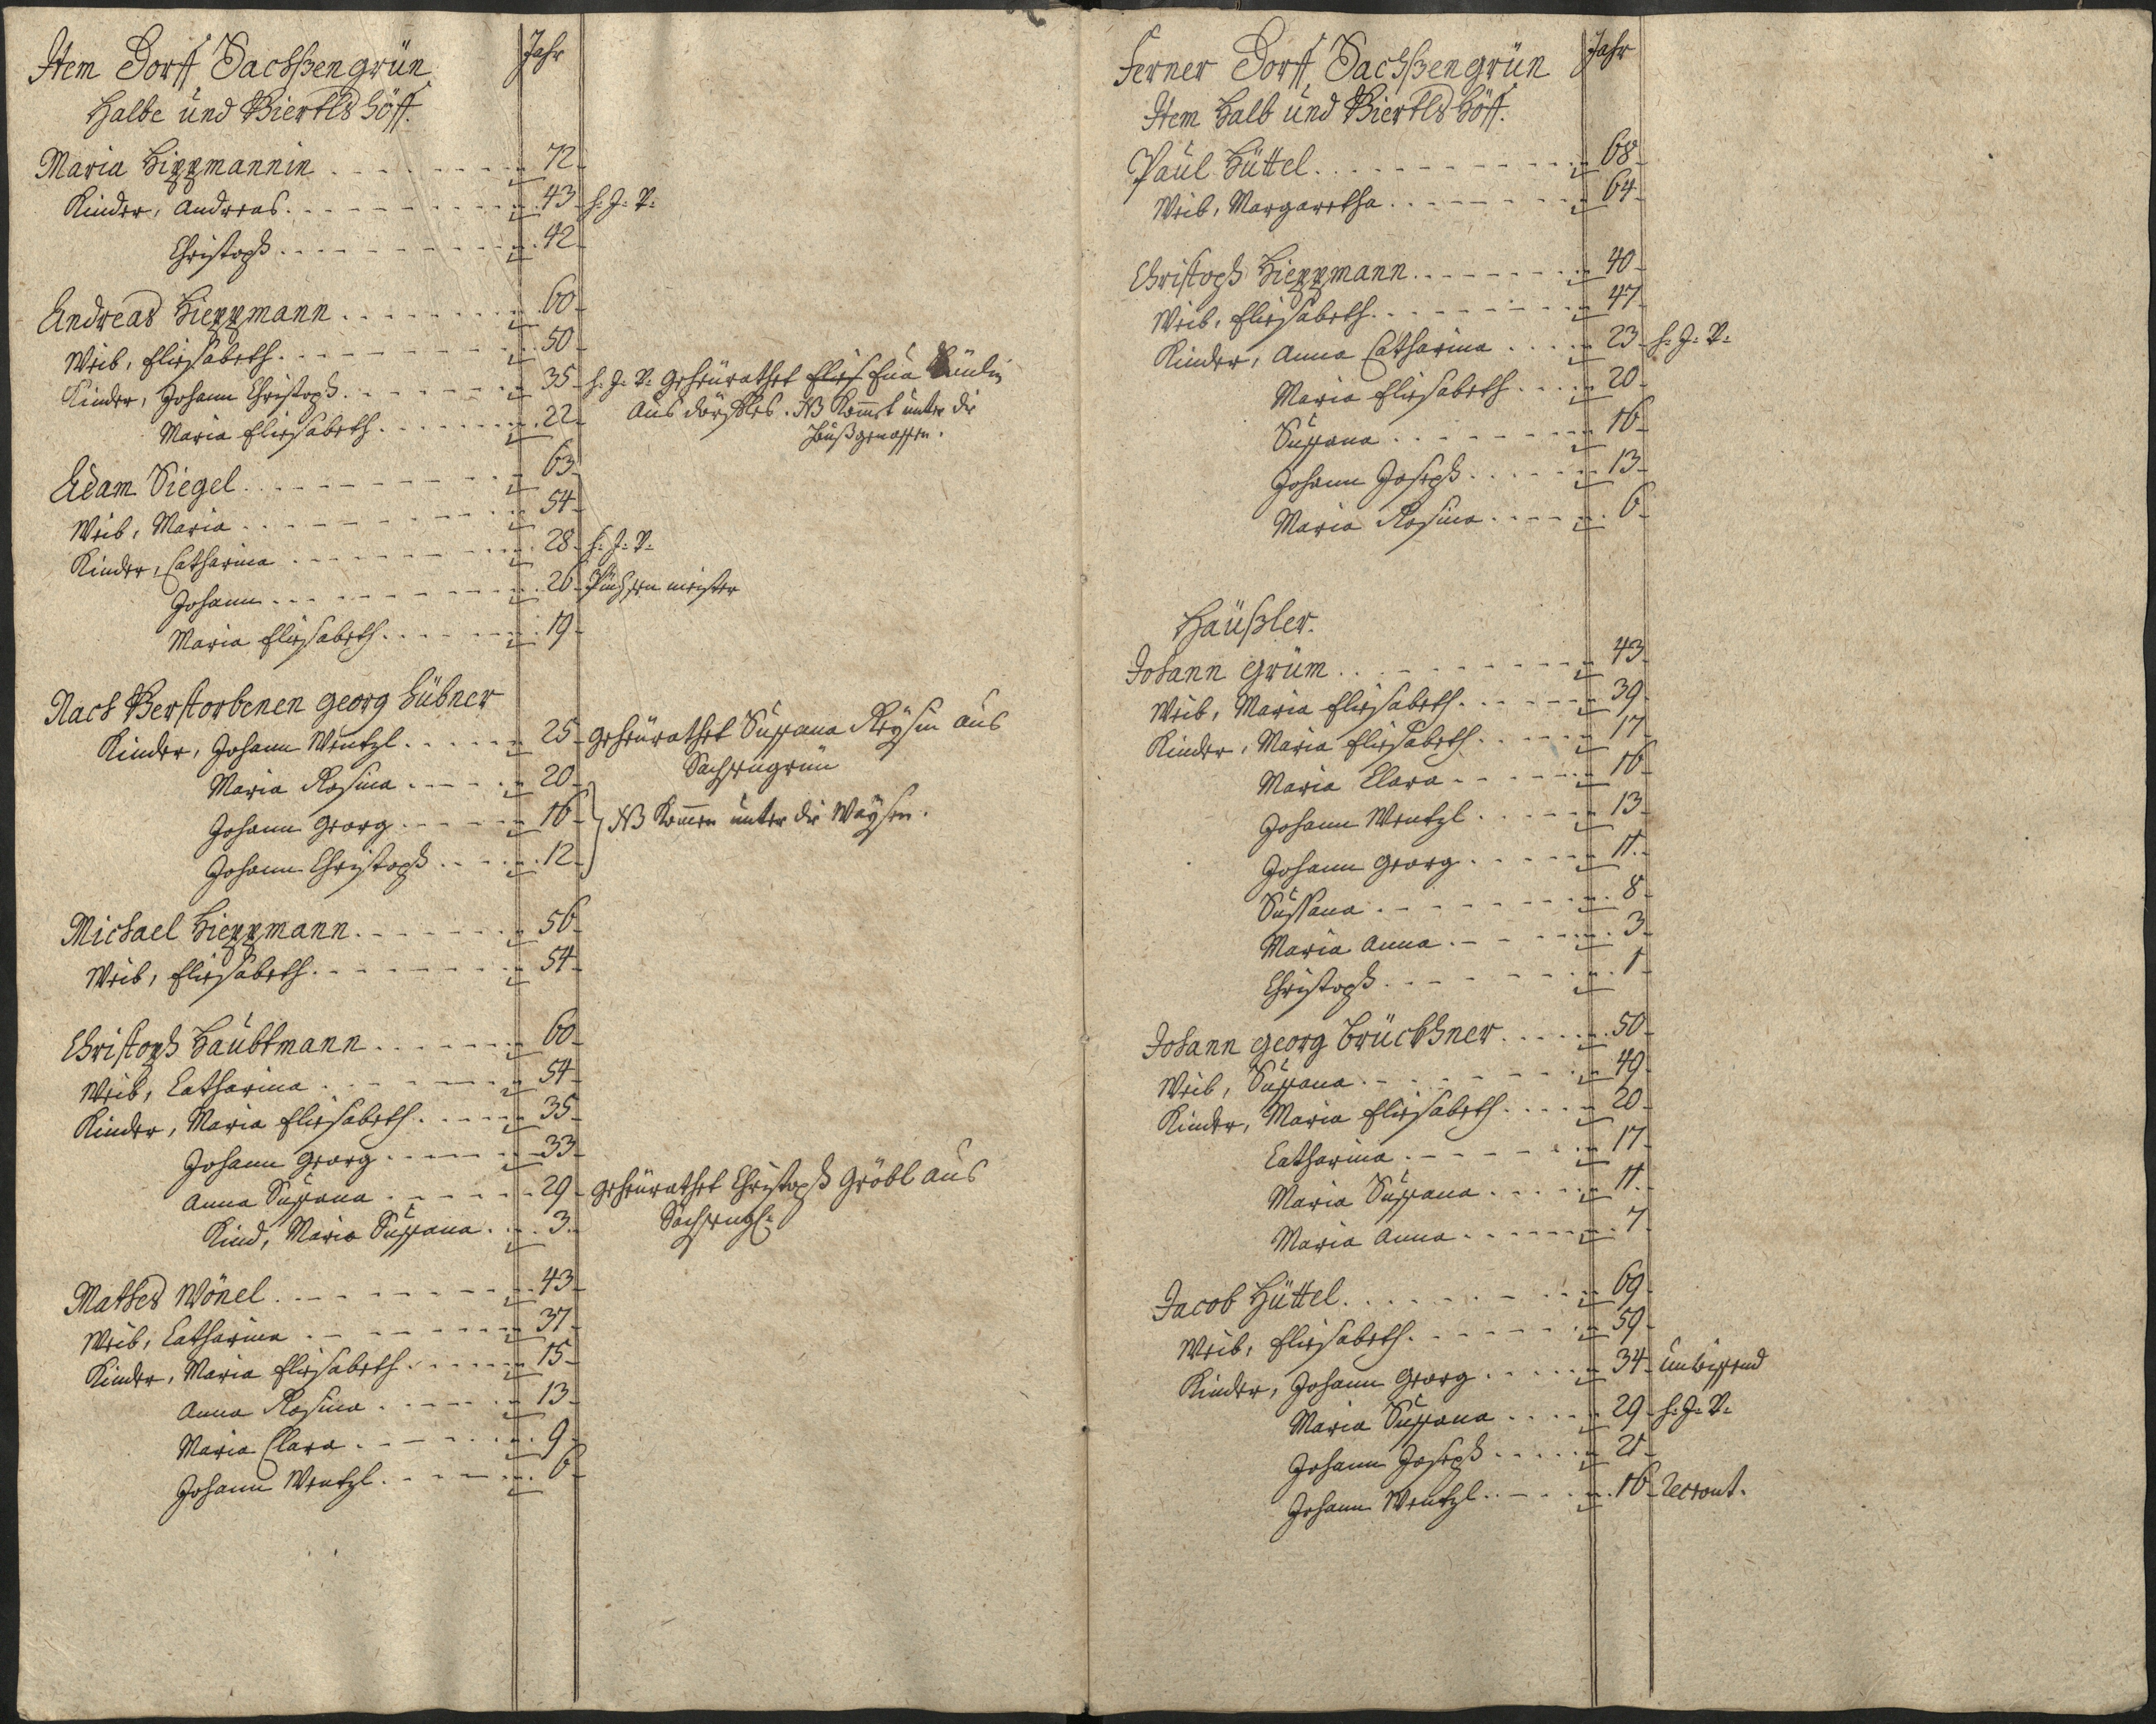 Item Dorff Sachßengrün Jahr
Halbe und Viertls Höff.
Maria Hippmannin 72
Kinder, Andreas 43 h: J: V:
Christoph 42
Andreas Hieppmann 60
Weib, Eliesabeth 50
Kinder, Johann Christoph 35 h: J: V: geheürathet Elies Eua
Maria Eliesabeth 22 aus NB Kommt unter die
Haußgenossen.
Adam Siegel 63
Weib, Maria 54
Kinder, Catharina 28 h: J: V:
Johann 26 Püchsenmeister
Maria Eliesabeth 19
Nach Verstorbenen Georg Hübner
Kinder, Johann Wentzl 25 geheürathet Sussana aus
Maria Rosina 20 Sachsengrün
Johann Georg 16 NB Kommen unter die Waysen.
Johann Christoph 12
Michael Hieppmann 56
Weib, Eliesabeth 54
Christoph Haubtmann 60
Weib, Catharina 54
Kinder, Maria Eliesabeth 35
Johann Georg 33
Anna Sussana 29 geheürathet Christoph Gröbl aus
Kind, Maria Sussana 3
Mathes Wönel 43
Weib, Catharina 37
Kinder, Maria Eliesabeth 15
Anna Rosina 13
Maria Clara 9
Johann Wentzl 6
Ferner Dorff Sachßengrün Jahr
Item Halb und Viertls Höff.
Paul Hüttel 68
Weib, Margaretha 64
Christoph Hieppmann 40
Weib, Eliesabeth 47
Kinder, Anna Catharina 23 h: J: V:
Maria Eliesabeth 20
Sussana 16
Johann Joseph 13
Maria Rosina 6
Häußler.
Johann Grüm 43
Weib, Maria Eliesabeth 39
Kinder, Maria Eliesabeth 17
Maria Clara 16
Johann Wentzl 13
Johann Georg 11
Sussana 8
Maria Anna 3
Christoph 1
Johann Georg Brückhner 50
Weib, Sussana 49
Kinder, Maria Eliesabeth 20
Catharina 17
Maria Sussana 11
Maria Anna 7
Jacob Hüttel 69
Weib, Eliesabeth 59
Kinder, Johann Georg 34 unwissend
Maria Sussana 29 h: J: V:
Johann Joseph 21
Johann Wentzl 16